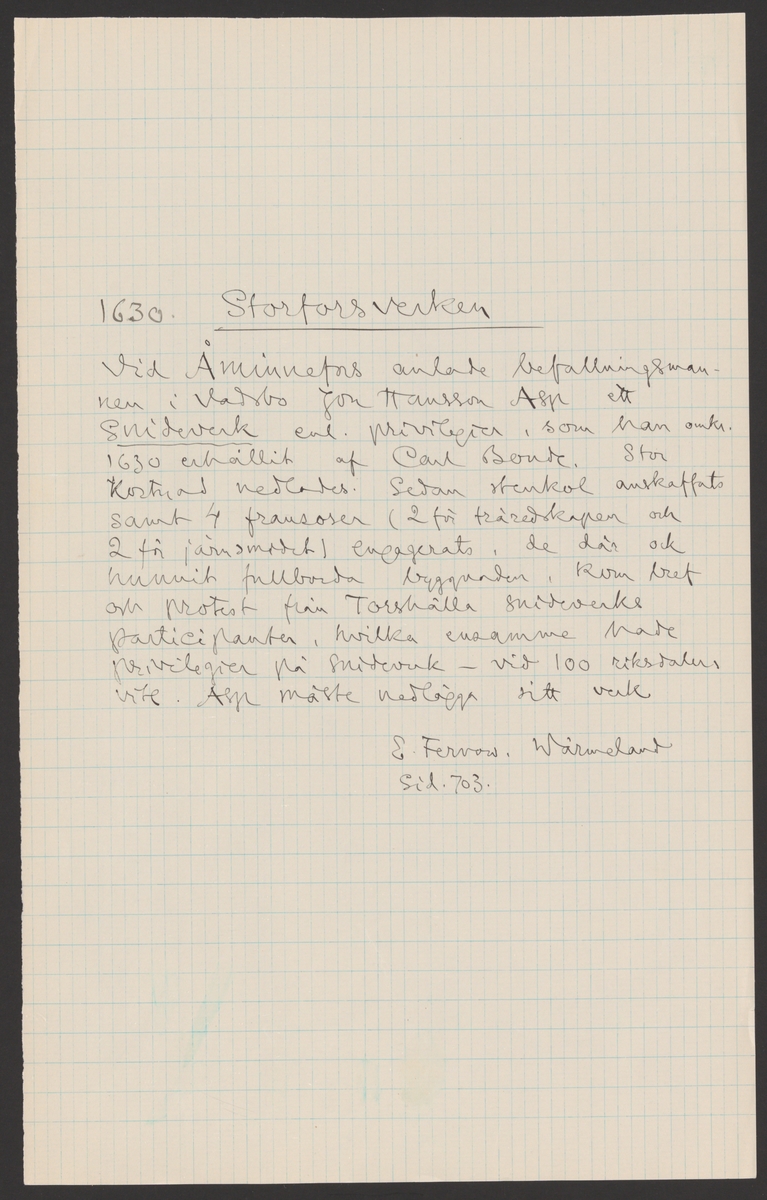 1630. Storforsverken
Vid Åminnefors anlade befallningsman-
nen i Vadsbo Jon Hansson Asp ett
Snideverk enl. privilegier, som han omkr.
1630 erhållit af Carl Bonde. Stor
Kostnad nedlades. Sedan stenkol anskaffats
samt 4 fransoser (2 för träredskapen och
2 för järnsmidet) engagerats, de där ock
hunnit fullborda byggnaden, kom bref
och protest från Torshälla snideverks
participanter, hvilka ensamme hade
privilegier på snideverk – vid 100 riksdalers
vite. Asp måste nedlägga sitt verk
E. Fernow. Wärmeland
Sid. 703.